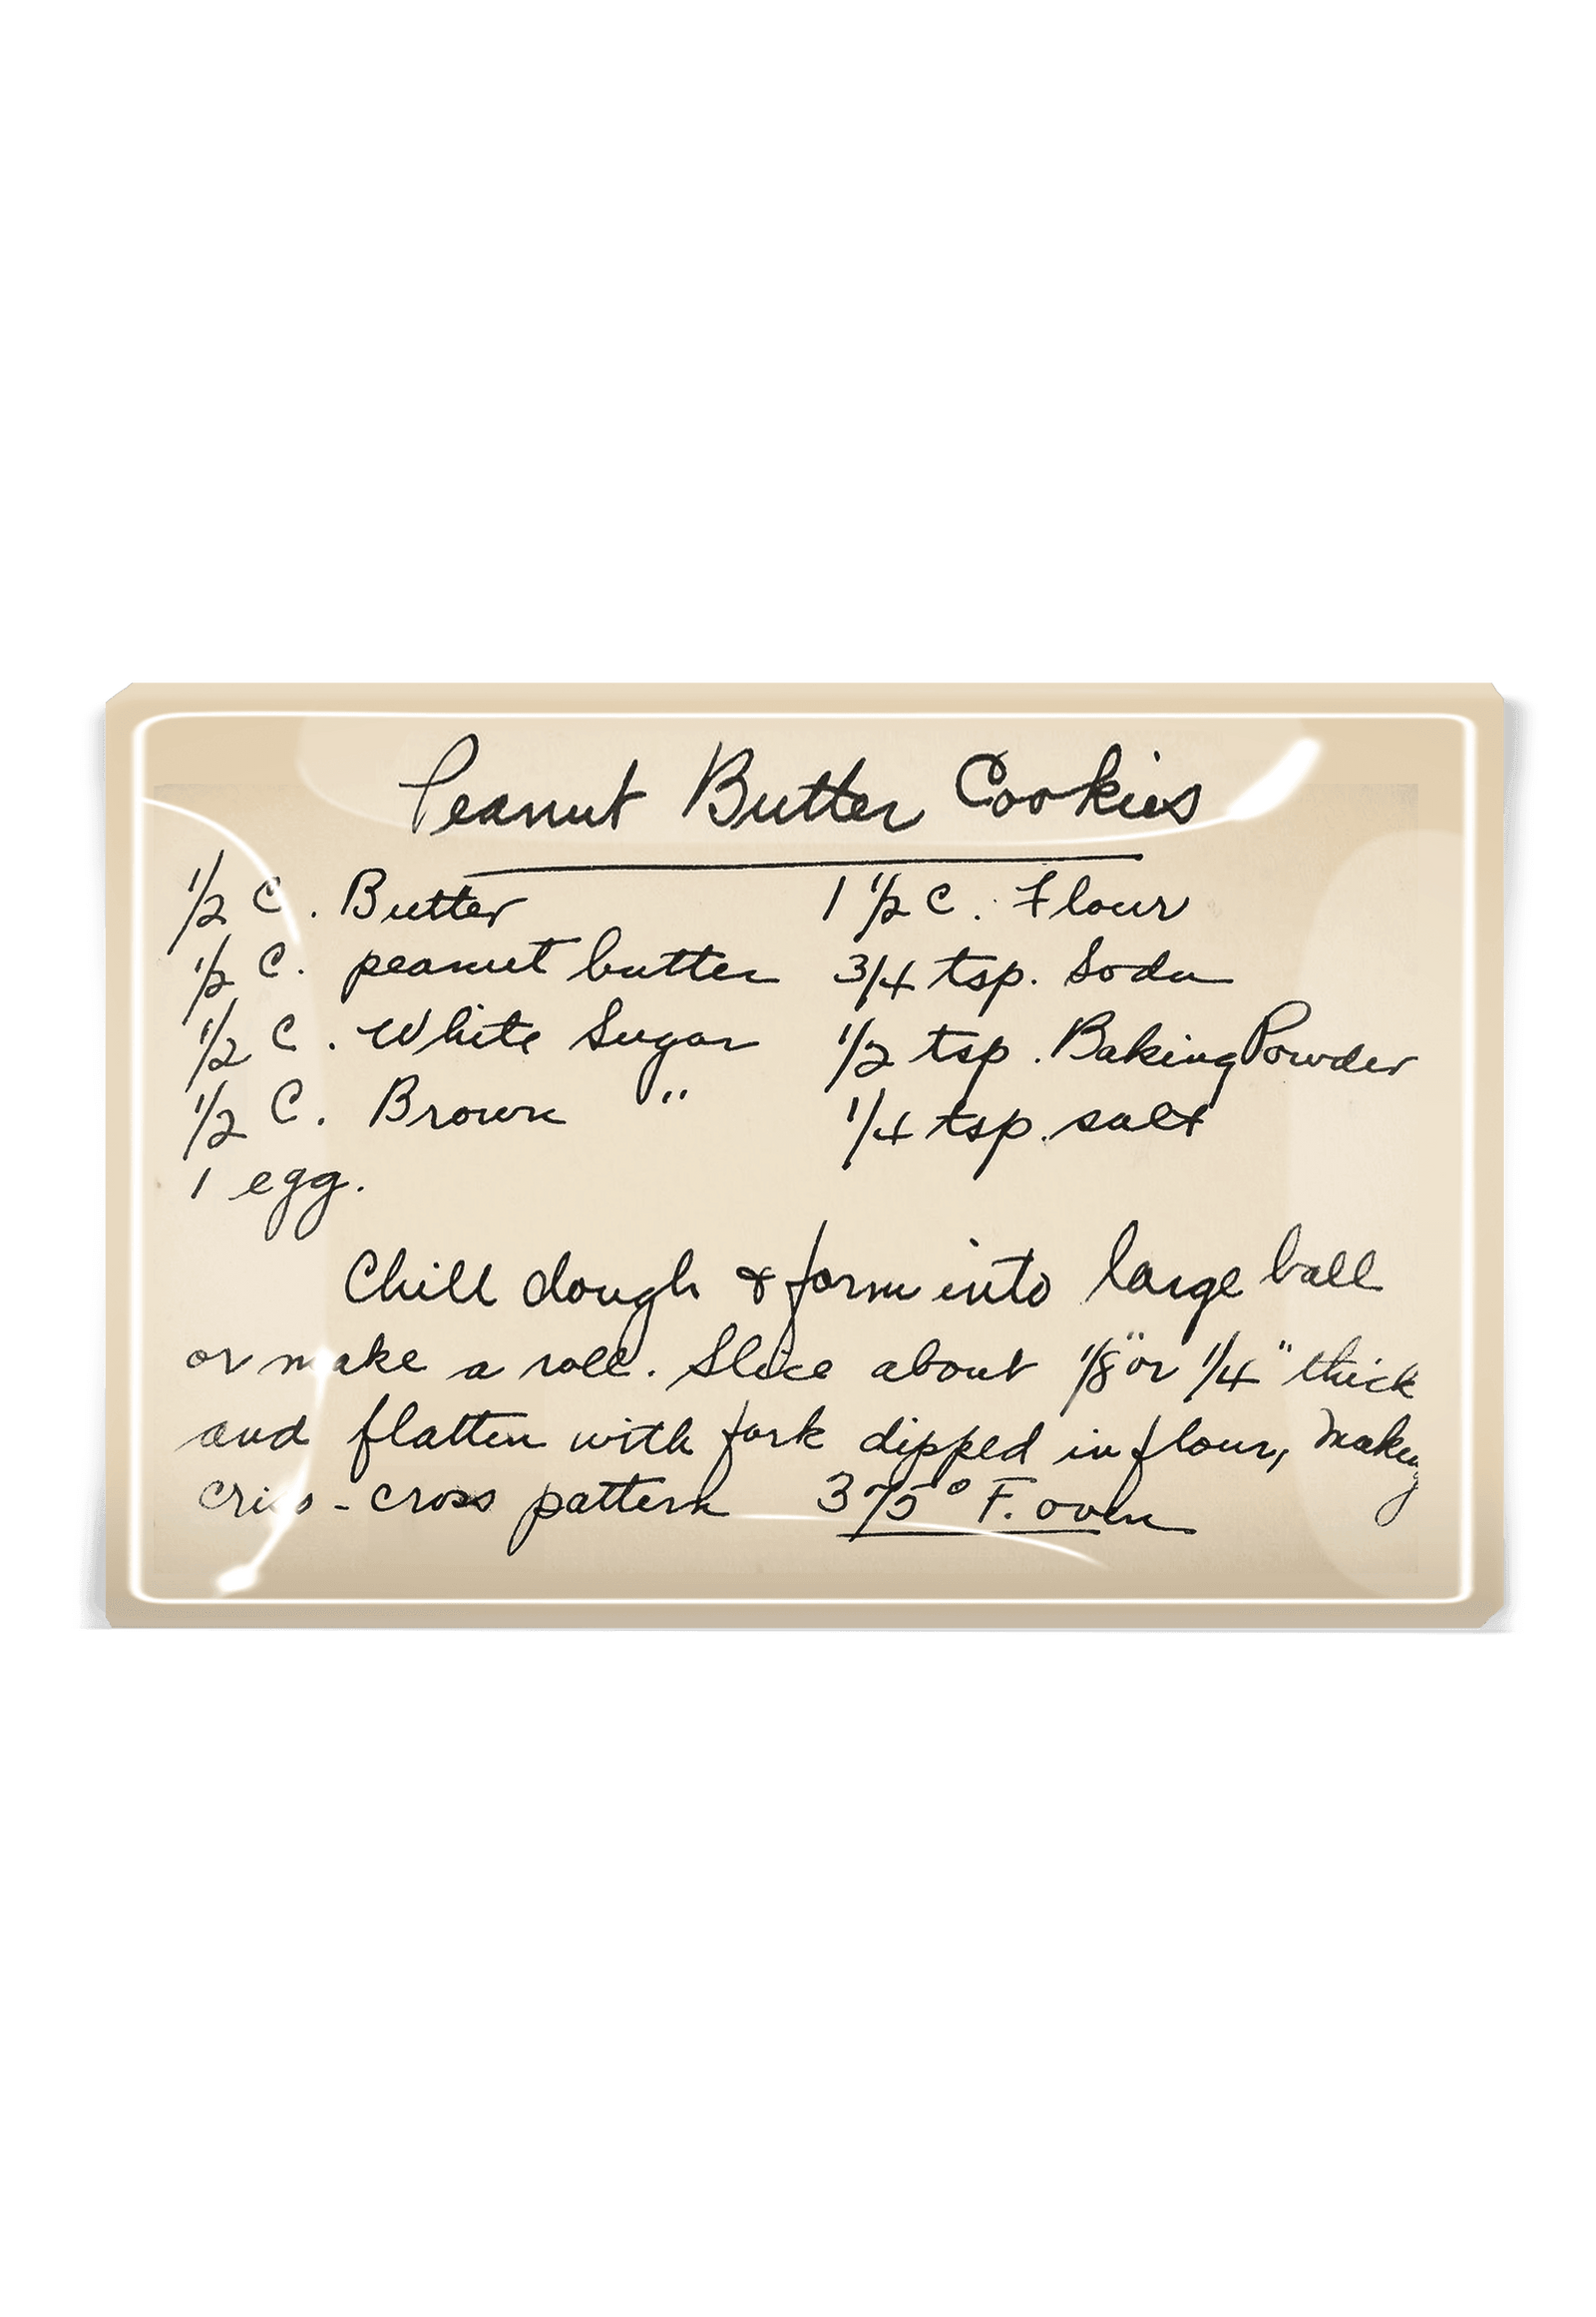 Peanut Butter Cookies
1/2 C. Butter 1 1/2 C. Flour
1/2 C. peanut butter 3/4 tsp. Soda
1/2 C. White Sugar 1/2 tsp. Baking Powder
1/2 C. Brown " 1/4 tsp. salt
1 egg.
Chill dough & form into large ball
or make a roll. Slice about 1/8" or 1/4" thick
and flatten with fork dipped in flour, making
criss-cross pattern 375° F. oven